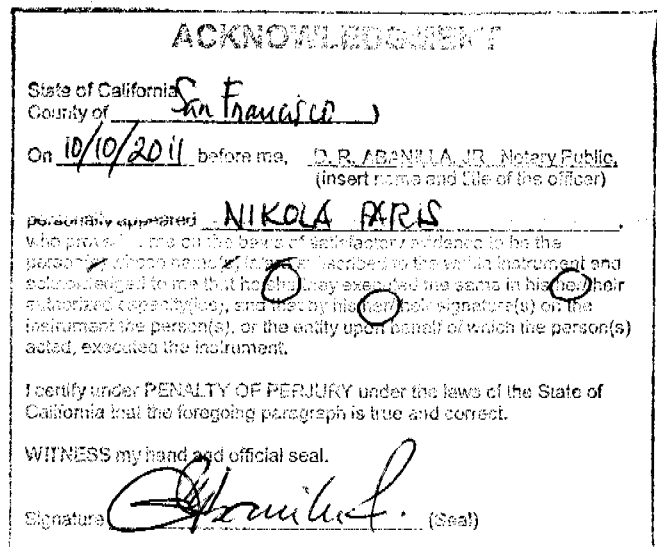 ACKNOWLEDGMENT
State of California
County of San Francisco )
On 10/10/2011 before me, D. R. ABANILLA, JR. Notary Public,
(insert name and title of the officer)
personally appeared NIKOLA PARIS ,
who proved me on the basis of satisfactory evidence to be the
person(s) whose name(s) is/are subscribed to the within instrument and
acknowledged to me that he/she/they executed the same in his/her/their
authorized capacity(ies), and that by his/her/their signature(s) on the
instrument the person(s), or the entity upon behalf of which the person(s)
acted, executed the instrument.
I certify under PENALTY OF PERJURY under the laws of the State of
California that the foregoing paragraph is true and correct.
WITNESS my hand and official seal.
Signature (Seal)